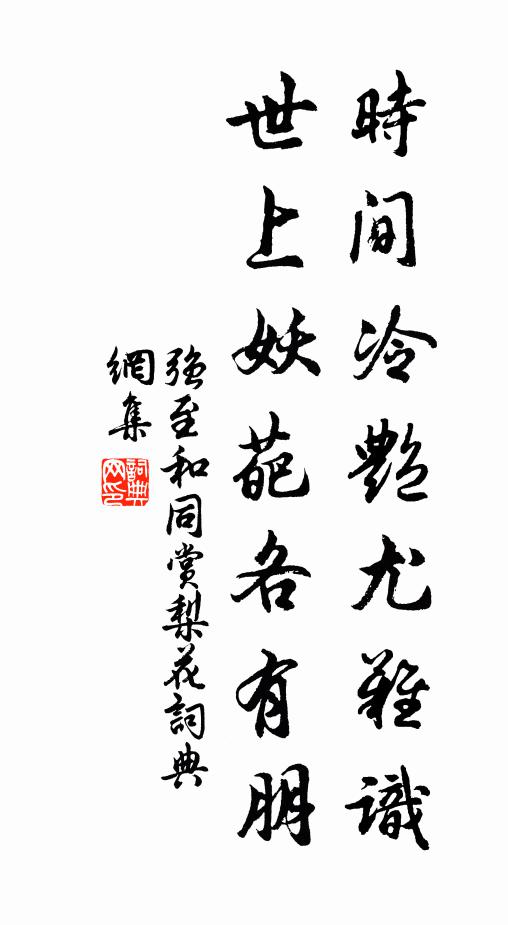 時間冷艷尤難識
世上妖葩各有朋
強至和同賞梨花詞典
網集
詞典網印